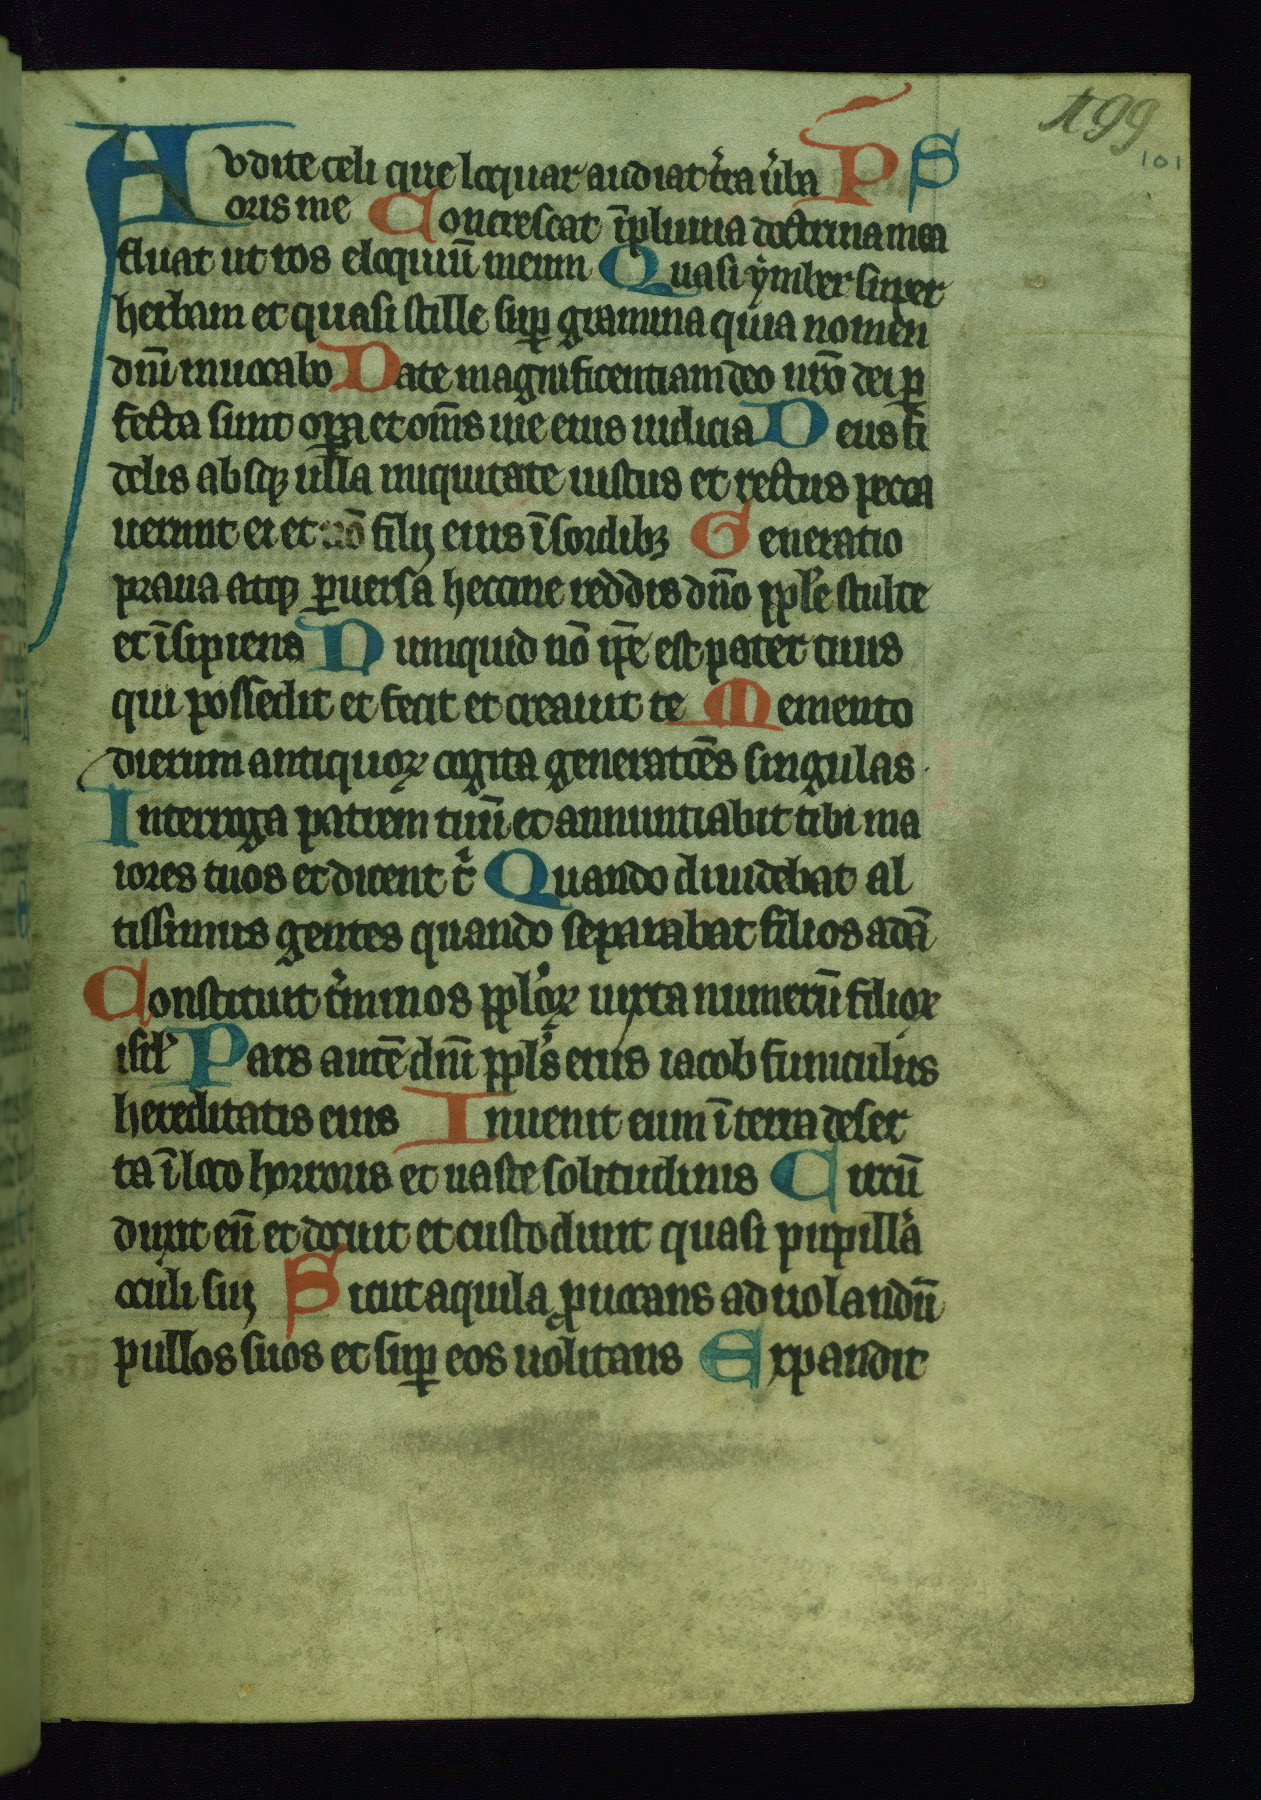 199
101
Audite celi que loquar audiat t'ra u'ba P̄S
oris mei Concrescat ī pluuia doctrina mea
fluat ut ros eloquiū meum Quasi ymber super
herbam et quasi stille sup̱ gramina quia nomen
dn̄i inuocabo Date magnificentiam deo nr̄o dei p̱
fecta sunt op̱a et om̄s uie eius iudicia Deus fi
delis absq; ulla iniquitate iustus et rectus pecca
uerunt ei et nō filij eius ī sordib; Generatio
praua atq; p̱uersa heccine reddis dn̄o pp̱le stulte
et īsipiens Numquid nō ip̄e est pater tuus
qui possedit et fecit et creauit te Memento
dierum antiquoꝝ cogita generatōes singulas
Interroga patrem tuū et annuntiabit tibi ma
iores tuos et dicent t' Quando diuidebat al
tissimus gentes quando separabat filios adā
Constituit t'minos pp̱loꝝ iuxta numerū filioꝝ
isrl' Pars autē dn̄i pp̱ls eius iacob funiculus
hereditatis eius Inuenit eum ī terra deser
ta ī loco horroris et uaste solitudinis Circū
duxit eū et docuit et custodiuit quasi pupillā
oculi sui Sicut aquila ꝓuocans ad uolandū
pullos suos et sup̱ eos uolitans Expandit